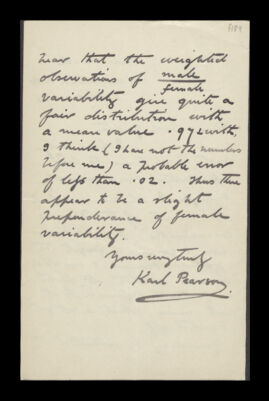 hear that the weighted
observations of male
female
variability give quite a
fair distribution with
a mean value .97 with,
I think (I have not the numbers
before me) a probable error
of less than .02. Thus there
appear to be a slight
preponderance of female
variability.
Yours very truly
Karl Pearson.